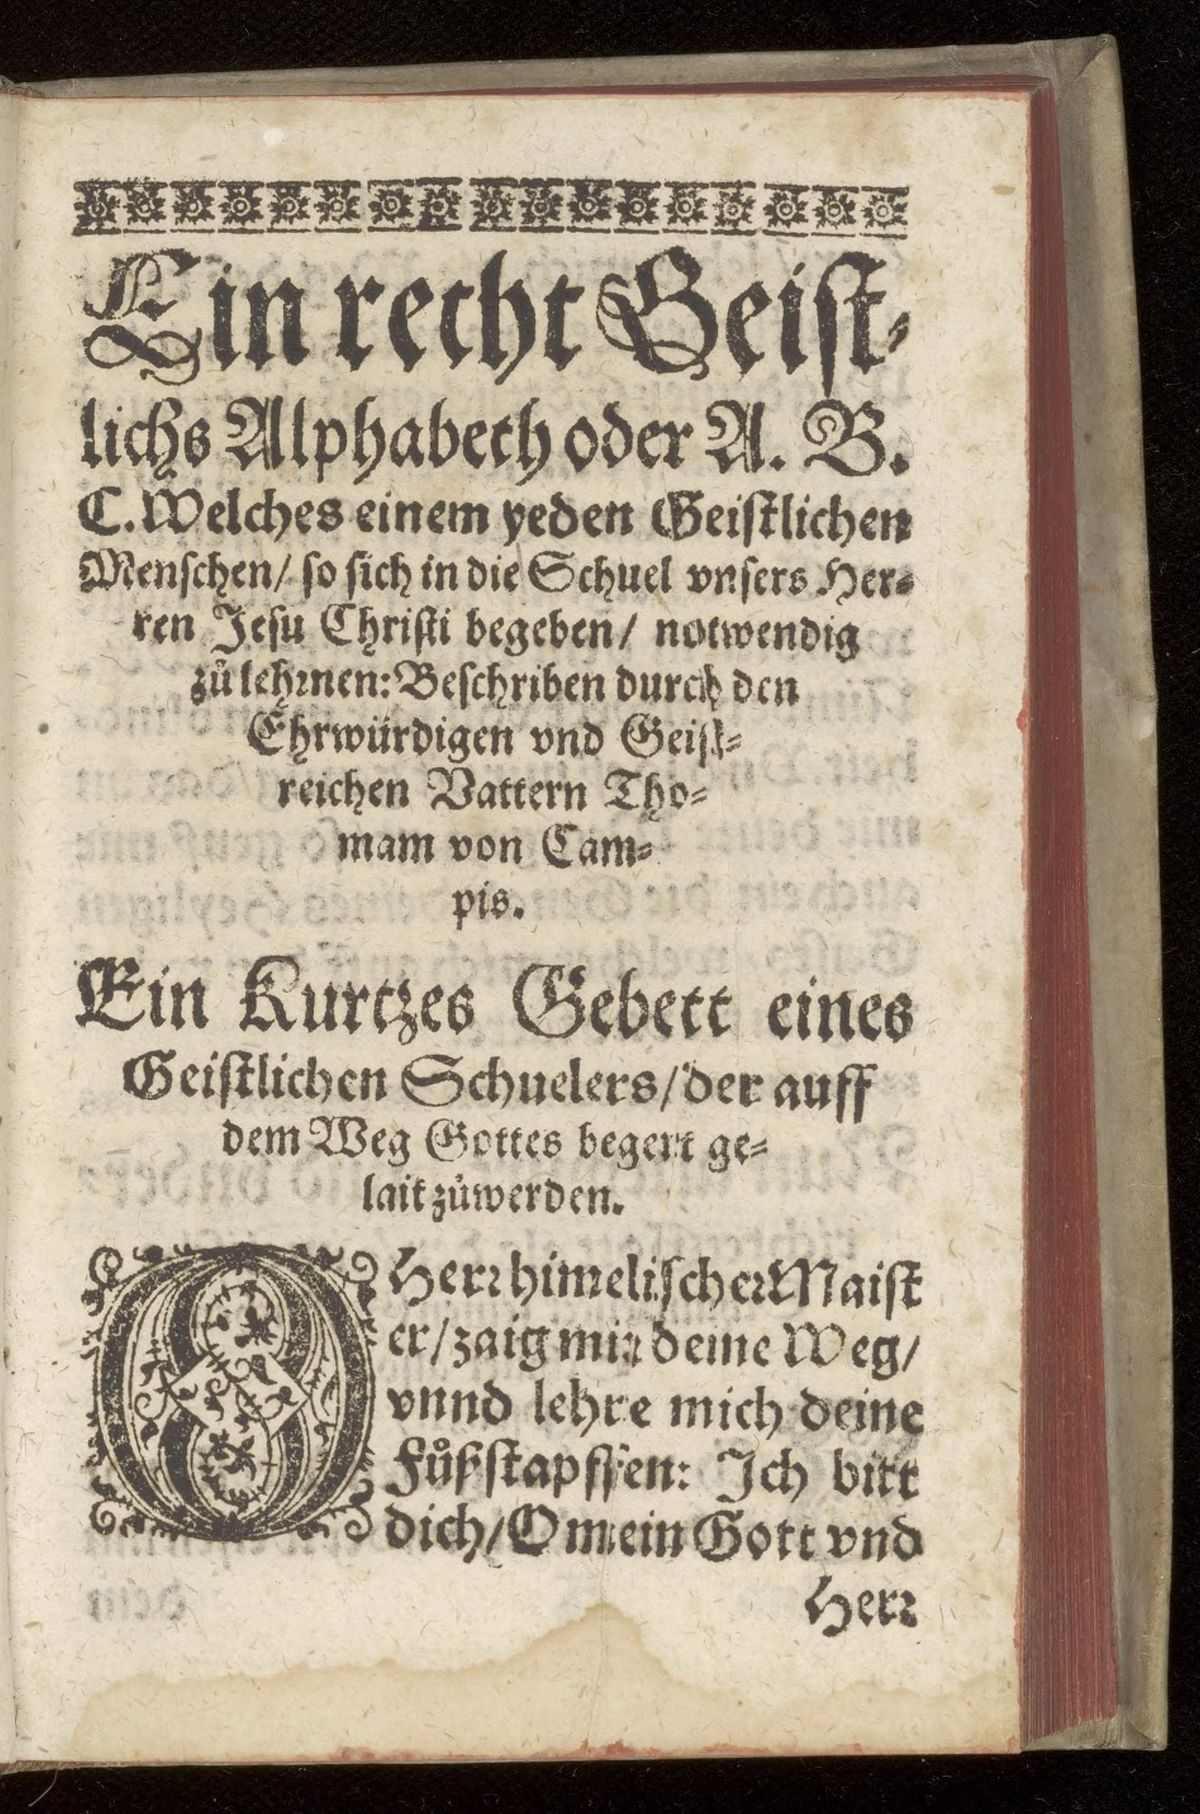 Ein recht Geist⸗
lichs Alphabeth oder A. B.
C. Welches einem yeden Geistlichen
Menschen/ so sich in die Schuel vnsers Her⸗
ren Jesu Christi begeben/ notwendig
zů lehrnen: Beschriben durch den
Ehrwürdigen vnd Geist⸗
reichen Vattern Tho⸗
mam von Cam⸗
pis.
Ein Kurtzes Gebett eines
Geistlichen Schuelers/ der auff
dem Weg Gottes begert ge⸗
lait zůwerden.
O Herr himelischer Maist
er/ zaig mir deine Weg/
vnnd lehre mich deine
Fůßstapffen: Ich bitt
dich/ O mein Gott vnd
Herr